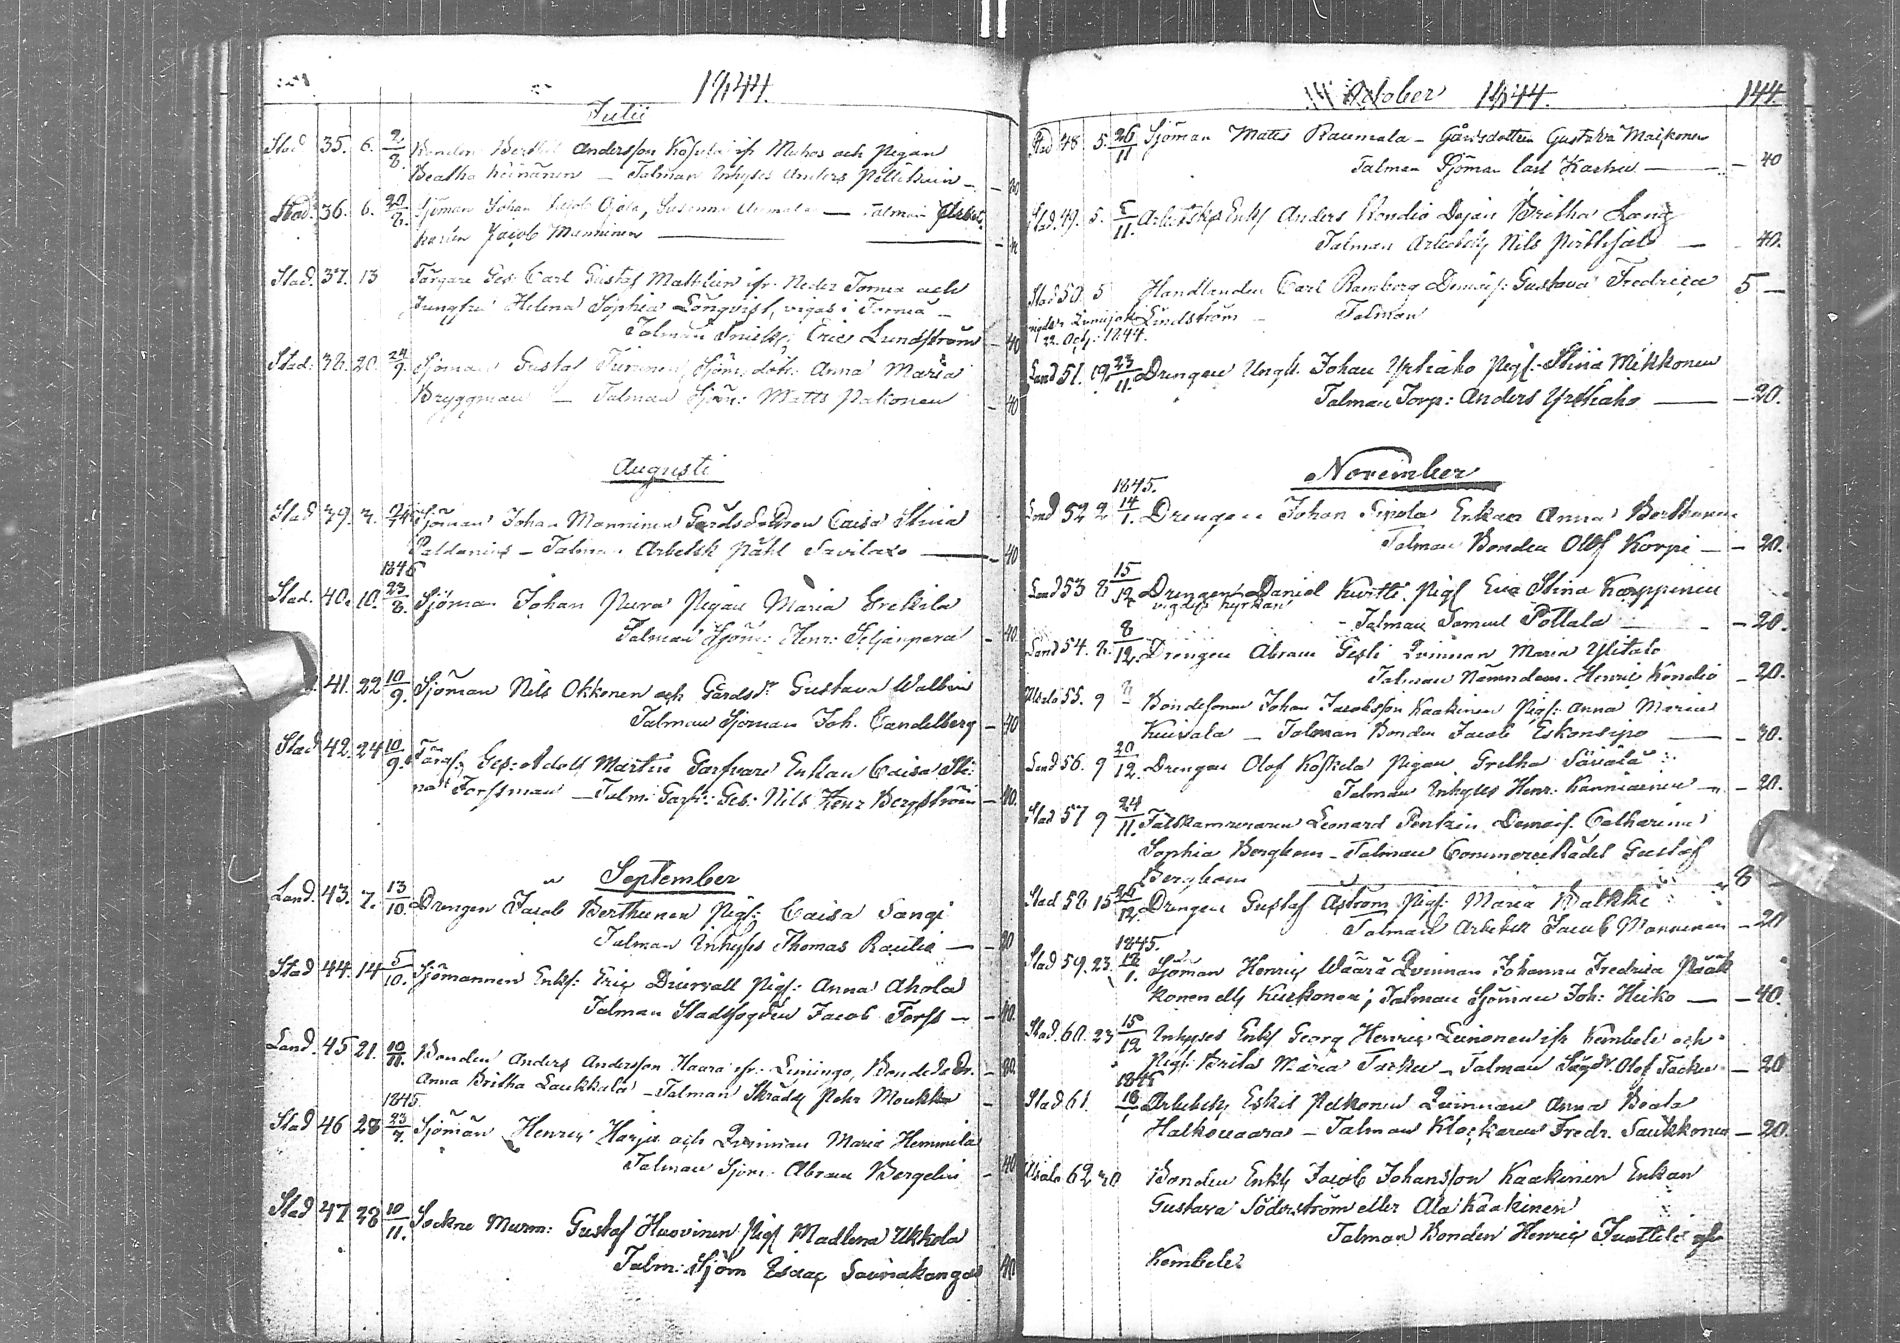 1844.
Julii
Stad 35. 6. 2/8. Bonden Bertil Andersson Koskela ifr Muhos och Pigan
Beatha Heinänen – Talman Inhyses Anders Pelttikain –
Stad. 36. 6. 20/8. Sjöman Johan Ojala, Susanna – Talman Arbets
karlen Jacob Manninen – 40
Stad. 37. 13 Färgare Ges. Carl Gustaf Matthein ifr Neder Tornea och
Jungfru Helena Sophia Lönqvist, vigas i Torneå –
Talman Eric Lundström – 40
Stad. 38. 20. 24/9. Sjöman Gustaf Turenen, Sjöm. dott. Anna Maria
Bryggman – Talman Sjöm: Matts Pakonen – 40
Augusti
Stad 39. 3. Sjöman Johan Manninen Gårds Dottren Caisa Stina
Paldanius – Talman Arbetsk Påhl Savilaxo – 40
1845
Stad. 40. 10. 23/8. Sjöman Johan Pura Pigan Maria Grekila
Talman Sjöm: Henr: Seljänpera – 40.
41. 22 10/9. Sjöman Nils Okkonen och Gårdsdr Gustava Wallin
Talman Sjöman Joh. Candelberg – 40
Stad 42. 24 10/9. Färgs. Ges: Adolf Martin Enkan Caisa Sti:
na Forssman – Talm: Garf: Ges: Nils Henr Bergström – 40.
September
Land. 43. 7. 13/10. Drengen Jacob Berthunen Pigs: Caisa Sangi
Talman Inhyses Thomas Rautio – 20
Stad 44. 14 5/10. Sjömannen Enkl: Eric Diurvall Pigs: Anna Ahola
Talman Stadsfogden Jacob Forss – 40.
Land. 45 21. 10/11. Bonden Anders Andersson Haara ifr. Limingo, Bonde Dr.
Anna Britha Laukkala – Talman Skrädd Pehr Moukka – 20.
1845
Stad 46 28 23/7. Sjöman Henric Harju och Qvinnan Maria Hemmila
Talman Sjöm. Abram Bergelin – 40
Stad 47 28 10/11. Sockne Murm: Gustaf Huovinen Pigs Madlena Ukkola
Talm: Sjöm Isaac Sauvakangas 40.
October 1844. 144.
Stad 48 5. 26/11 Sjöman Matts Raumala – Gårdsdottren Gustava Maikonen
Talman Sjöman Carl Karhu – 40
Stad. 49. 5. 5/11. Arbetskar Enkl Anders Kondio Dejan Britha Lang
Talman Arbetsk Nils Pirttijalo – 40.
Stad 50. 5 Handlanden Carl Ramberg Demois: Gustava Fredrica 5 –
vigde i Lumijoki Lindström – Talman
22. Oct. 1844.
Land 51. 19 23/11. Drengen Ungk. Johan Yrkiäko Pigs: Stina Mikkonen
Talman Torp: Anders Yrkiako – 20.
November
1845.
Land 52 2 14/1. Drengen Johan Sipola Enkan Anna Berthunen
Talman Bonden Olof Korpi – 20.
Land 53 8 15/12. Drengen Daniel Kurtti. Pigs Eva Stina Karppinen
vigde i kyrkan
– Talman Samuel Pollala – 20.
Land 54. 8/12. Drengen Abram Qvinnan Maria Ylitalo
Talman Nämndem. Henric Kondio – 20.
55. 9 Bondesonen Johan Jacobsson Kaakinen Pigs: Anna Maria
Kuivala – Talman Bonden Jacob Eskonsipo – 30.
Land 56. 9 20/12. Drengen Olof Koskela Pigan Gretha Säväla
Talman Inhyses Henr. Kanniainen – 20.
Stad 57 9 24/11. Fältkamreraren Leonard Pentzin Demois. Catharina
Sophia Bergbom – Talman Commerce Rådet Gustaf
Bergbom – 8 –
Stad 58 15 26/12. Drengen Gustaf Åström Pigs: Maria Walkki
Talman Arbetsk Jacob Manninen – 20
1845.
Stad 59. 23. 12/1. Sjöman Henric Waärä Qvinnan Johanna Fredrica Pääk
konen ell: Kurkonen; Talman Sjöman Joh: Heiko – 40.
Stad 60. 23 15/12 Inhyses Enkl Georg Henric Leinonen ifr Kembele och
Pigs: Brita Maria Tacku – Talman Olof Tacku – 20
1845
Stad 61. 18/1 Arbetsk Eskil Pelkonen Qvinnan Anna Beata
Halkovaara – Talman Klockaren Fredr. Saukkonen – 20.
62 30 Bonden Enkl Jacob Johansson Kaakinen Enkan
Gustava Söderström eller Ala Kaakinen
Talman Bonden Henric Juuttila ifr
Kembele